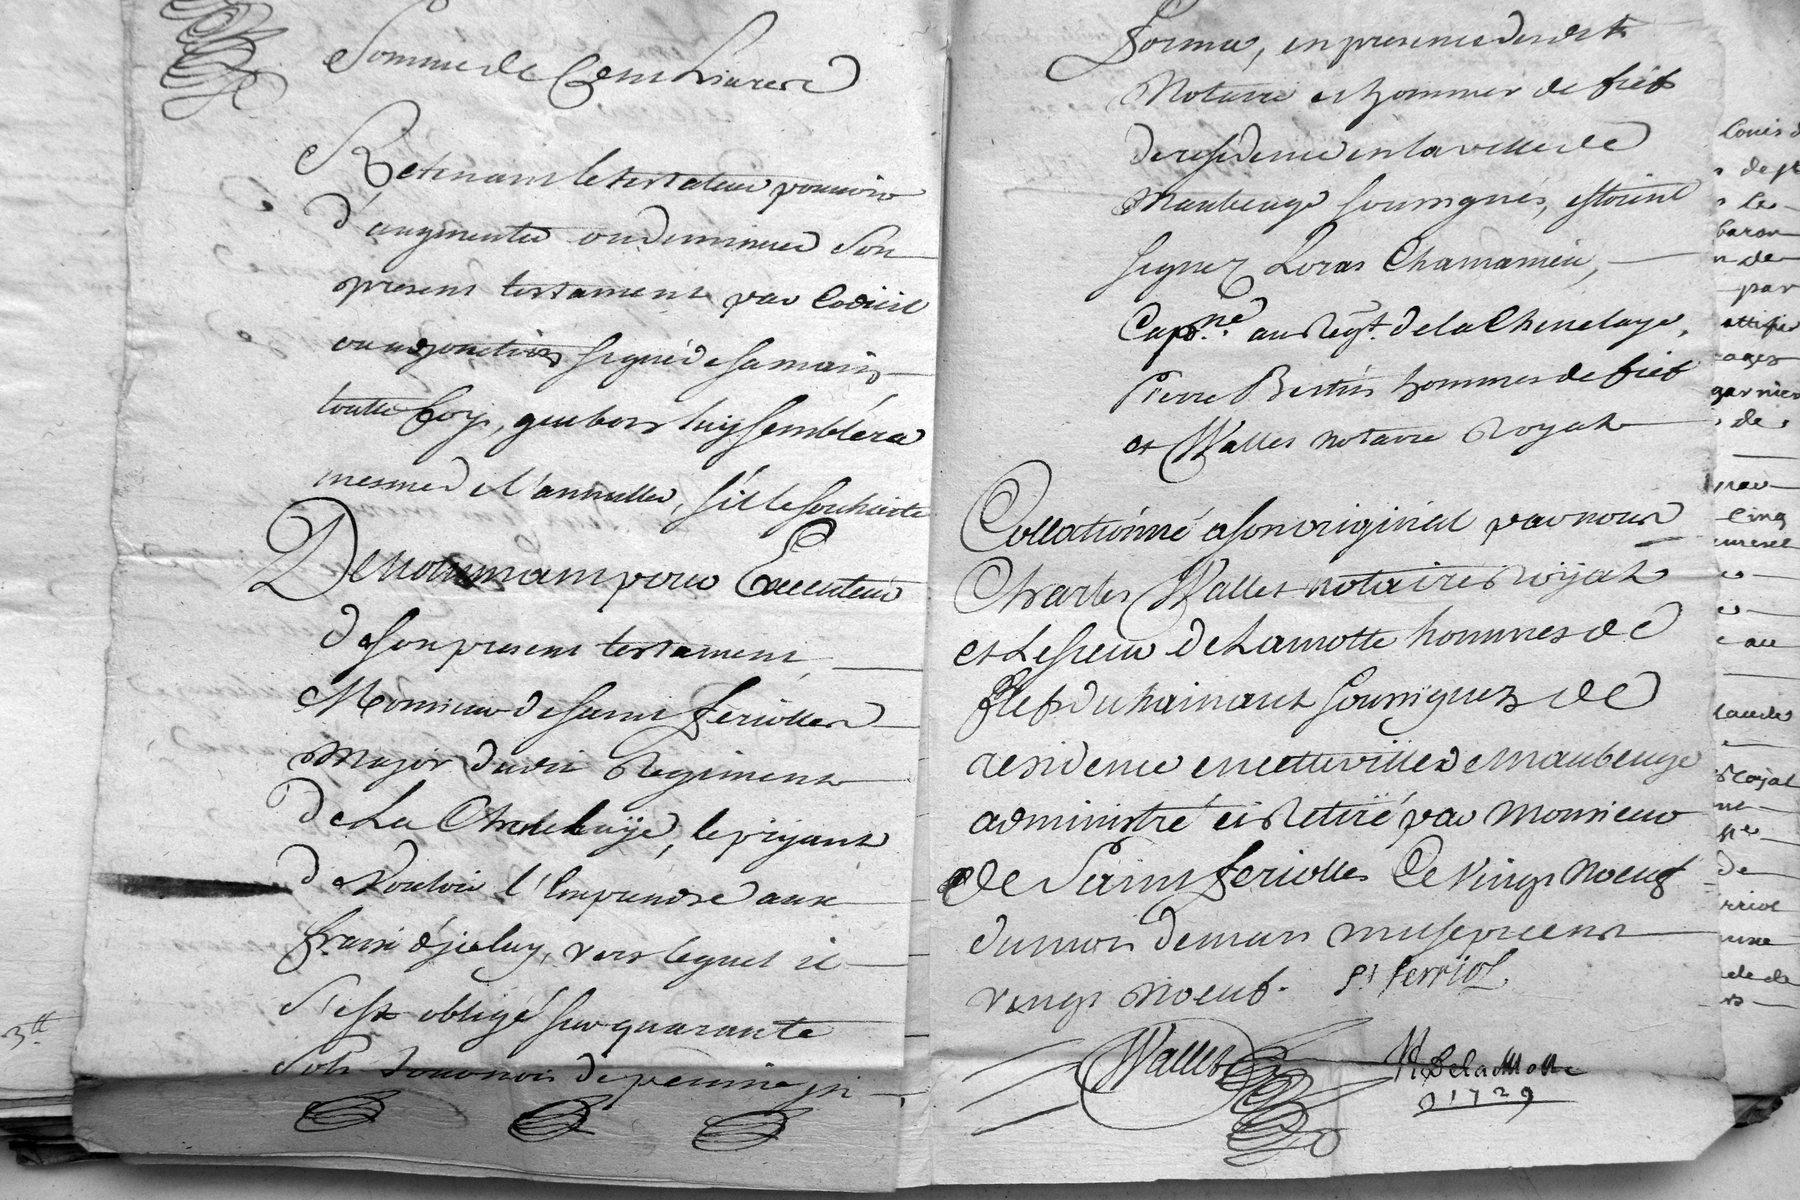 Somme de Cent Livres
Retenant le testateur pouvoir
d'augmenter ou diminuer son
present testament par Codicil
ou adjonction signé de sa main
toutte foy, que bon luy sembléra
mesme de l'annuller, s'il le souhaitte
Denommant pour Executeur
de son present testament
Monsieur de saint feriolles
Major dudit Regiment
de La Chelelaÿe, le priant
de Vouloir l'emprendre aux
frais d'jceluy, vers lequel il
s'est obligé sur quarante
Sols tournois de peinne, si
forme, en presence desdits
Notaire et hommes de fief
de residence en la ville de
Maubeuge soussignés, estoient
signez Loras Chamanieu,
Capne. au Regt. de la Chenelaye,
Pierre Bertin hommes de fief
et Wallet notaire Royal
Collationné a son original par nous
Charles Wallet notaire Roÿal
et Lesieur de Lamotte hommes de
fiefs du hainaut soussignez de
residence en cette ville de Maubeuge
administré et Retiré par Monsieur
de Saint feriolles Ce Vingt Noeuf
du mois de mars mil sept cent
vingt Noeuf. St ferriol
Wallet
De la Motte
1729
3.tt
Louis d
le
baron
de
par
attesté
de
Cinq
au
Roÿal
de
rriol